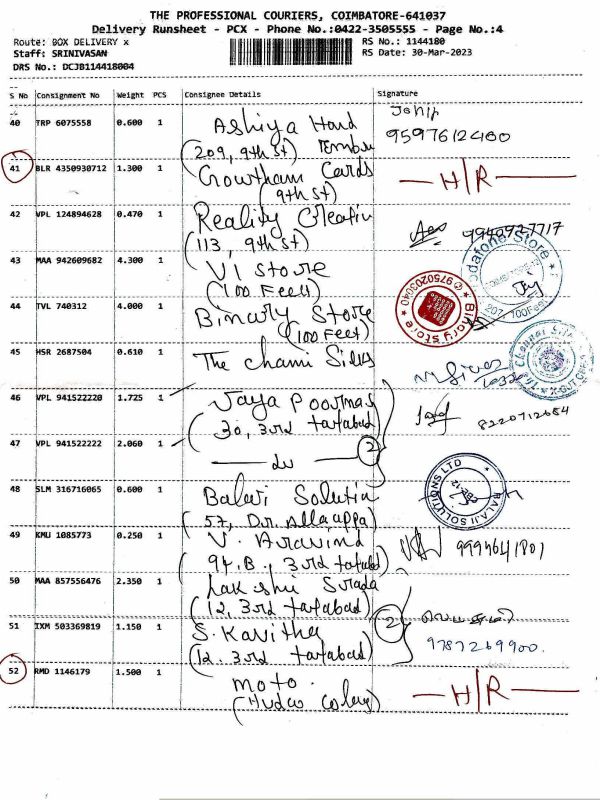 THE PROFESSIONAL COURIERS, COIMBATORE-641037
Delivery Runsheet - PCX - Phone No.:0422-3505555 - Page No.:4
Route: BOX DELIVERY x
RS No.: 1144180
Staff: SRINIVASAN
RS Date: 30-Mar-2023
DRS No.: DCJB114418004
S No Consignment No Weight PCS Consignee Details Signature
40 TRP 6075558 0.600 1 Ashiya Hard
(209, 9th st) 9597612400
41 BLR 4350930712 1.300 1 Gowtham Cards —H/R—
(9th st)
42 VPL 124894628 0.470 1 Reality Creatin
(113, 9th st)
43 MAA 942609682 4.300 1 VI store
(100 Feet)
44 TVL 740312 4.000 1 Binary Store
(100 Feet)
Vodafone Store
9750203040
Binary store
45 HSR 2687504 0.610 1 The Chami Silks
46 VPL 941522220 1.725 1 Jaya Poormas
30, 3rd tatabad 8220712684
47 VPL 941522222 2.060 1 — du — 2
48 SLM 316716065 0.600 1 Balaji Solutin
(57, Dr. Allaappa)
BALAJI SOLUTIONS LTD
49 KMU 1085773 0.250 1 V. Aravind
94.B, 3rd tatabad
50 MAA 857556476 2.350 1 Lakshu Srada
(12, 3rd tatabad) 2
51 IXM 503369819 1.150 1 S. Kavitha
(12. 3rd tatabad) 9787269900.
52 RMD 1146179 1.500 1 moto. —H/R—
(Hudco Coloy)